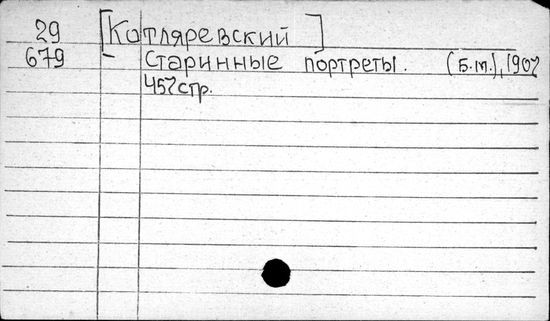 29 [Котляревский]
679 Старинные портреты. (б.m.), 1907
457 стр.